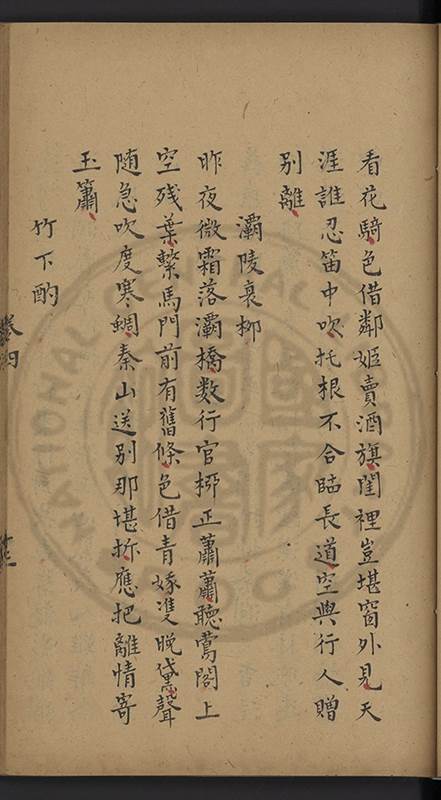 看花騎色借鄰姬賣酒旗閨裡豈堪窗外見天
涯誰忍笛中吹托根不合臨長道空與行人贈
别離
灞陵衰柳
昨夜微霜落灞橋数行官栁正蕭蕭聽鶯閣上
空残葉繫馬門前有舊條色借青娥雙晚黛聲
随急吹度寒蜩秦山送别那堪折應把離情寄
玉簫
竹下酌